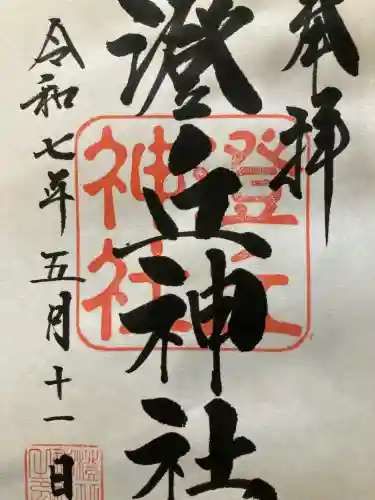 奉拝
澄丘神社
令和七年五月十一日
澄丘
神社